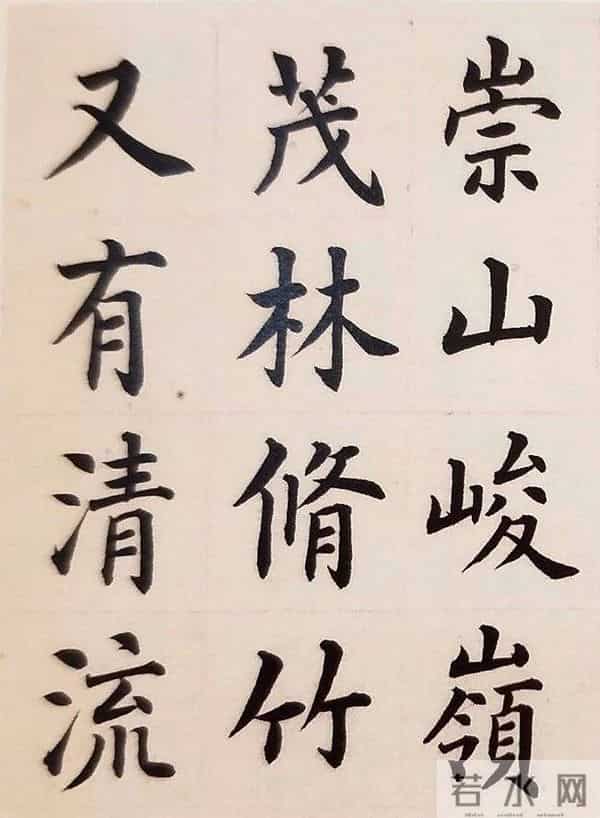 崇山峻嶺
茂林脩竹
又有清流
若水网